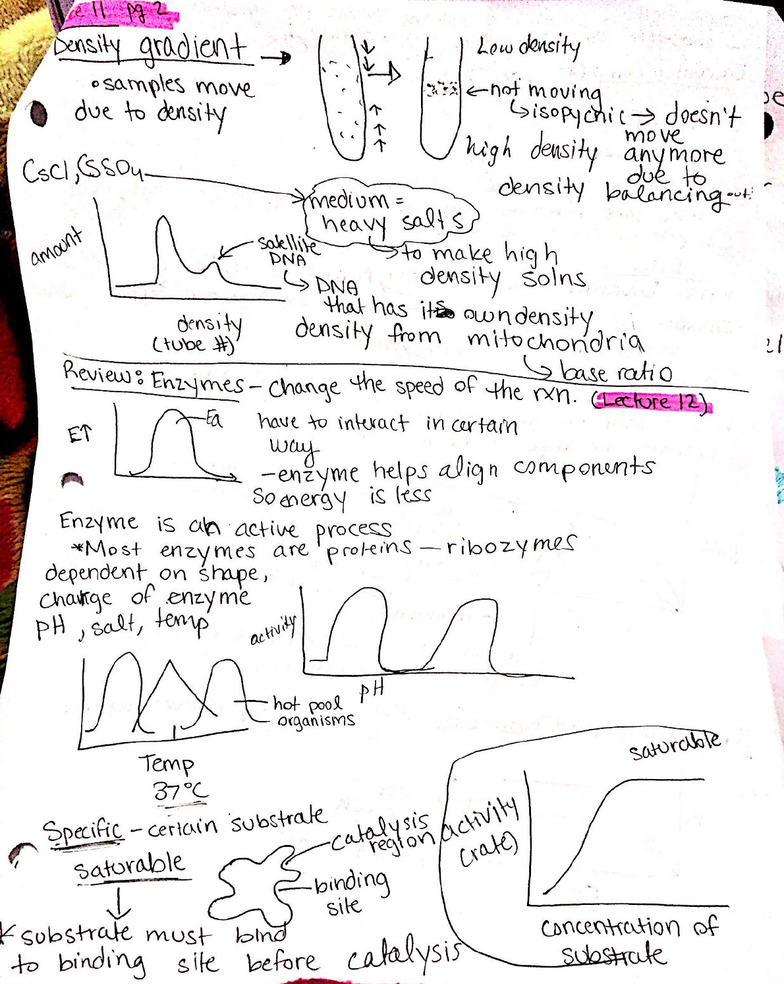 e 11 pg 2
Density gradient →
• samples move
due to density
Low density
← not moving
↳ isopycnic → doesn't
move
high density anymore
due to
density balancing out
CsCl, CsSO4
medium =
heavy salts
↳ to make high
density solns
amount
satellite
DNA
↳ DNA
that has its own density
density from mitochondria
↳ base ratio
density
(tube #)
Review: Enzymes - change the speed of the rxn. (Lecture 12)
E↑
Ea
have to interact in certain
way
- enzyme helps align components
so energy is less
Enzyme is an active process
*Most enzymes are proteins - ribozymes
dependent on shape,
change of enzyme
pH, salt, temp
activity
pH
hot pool
organisms
Temp
37°C
Specific - certain substrate
saturable
catalysis
region
binding
site
* substrate must bind
to binding site before catalysis
saturable
activity
(rate)
concentration of
substrate